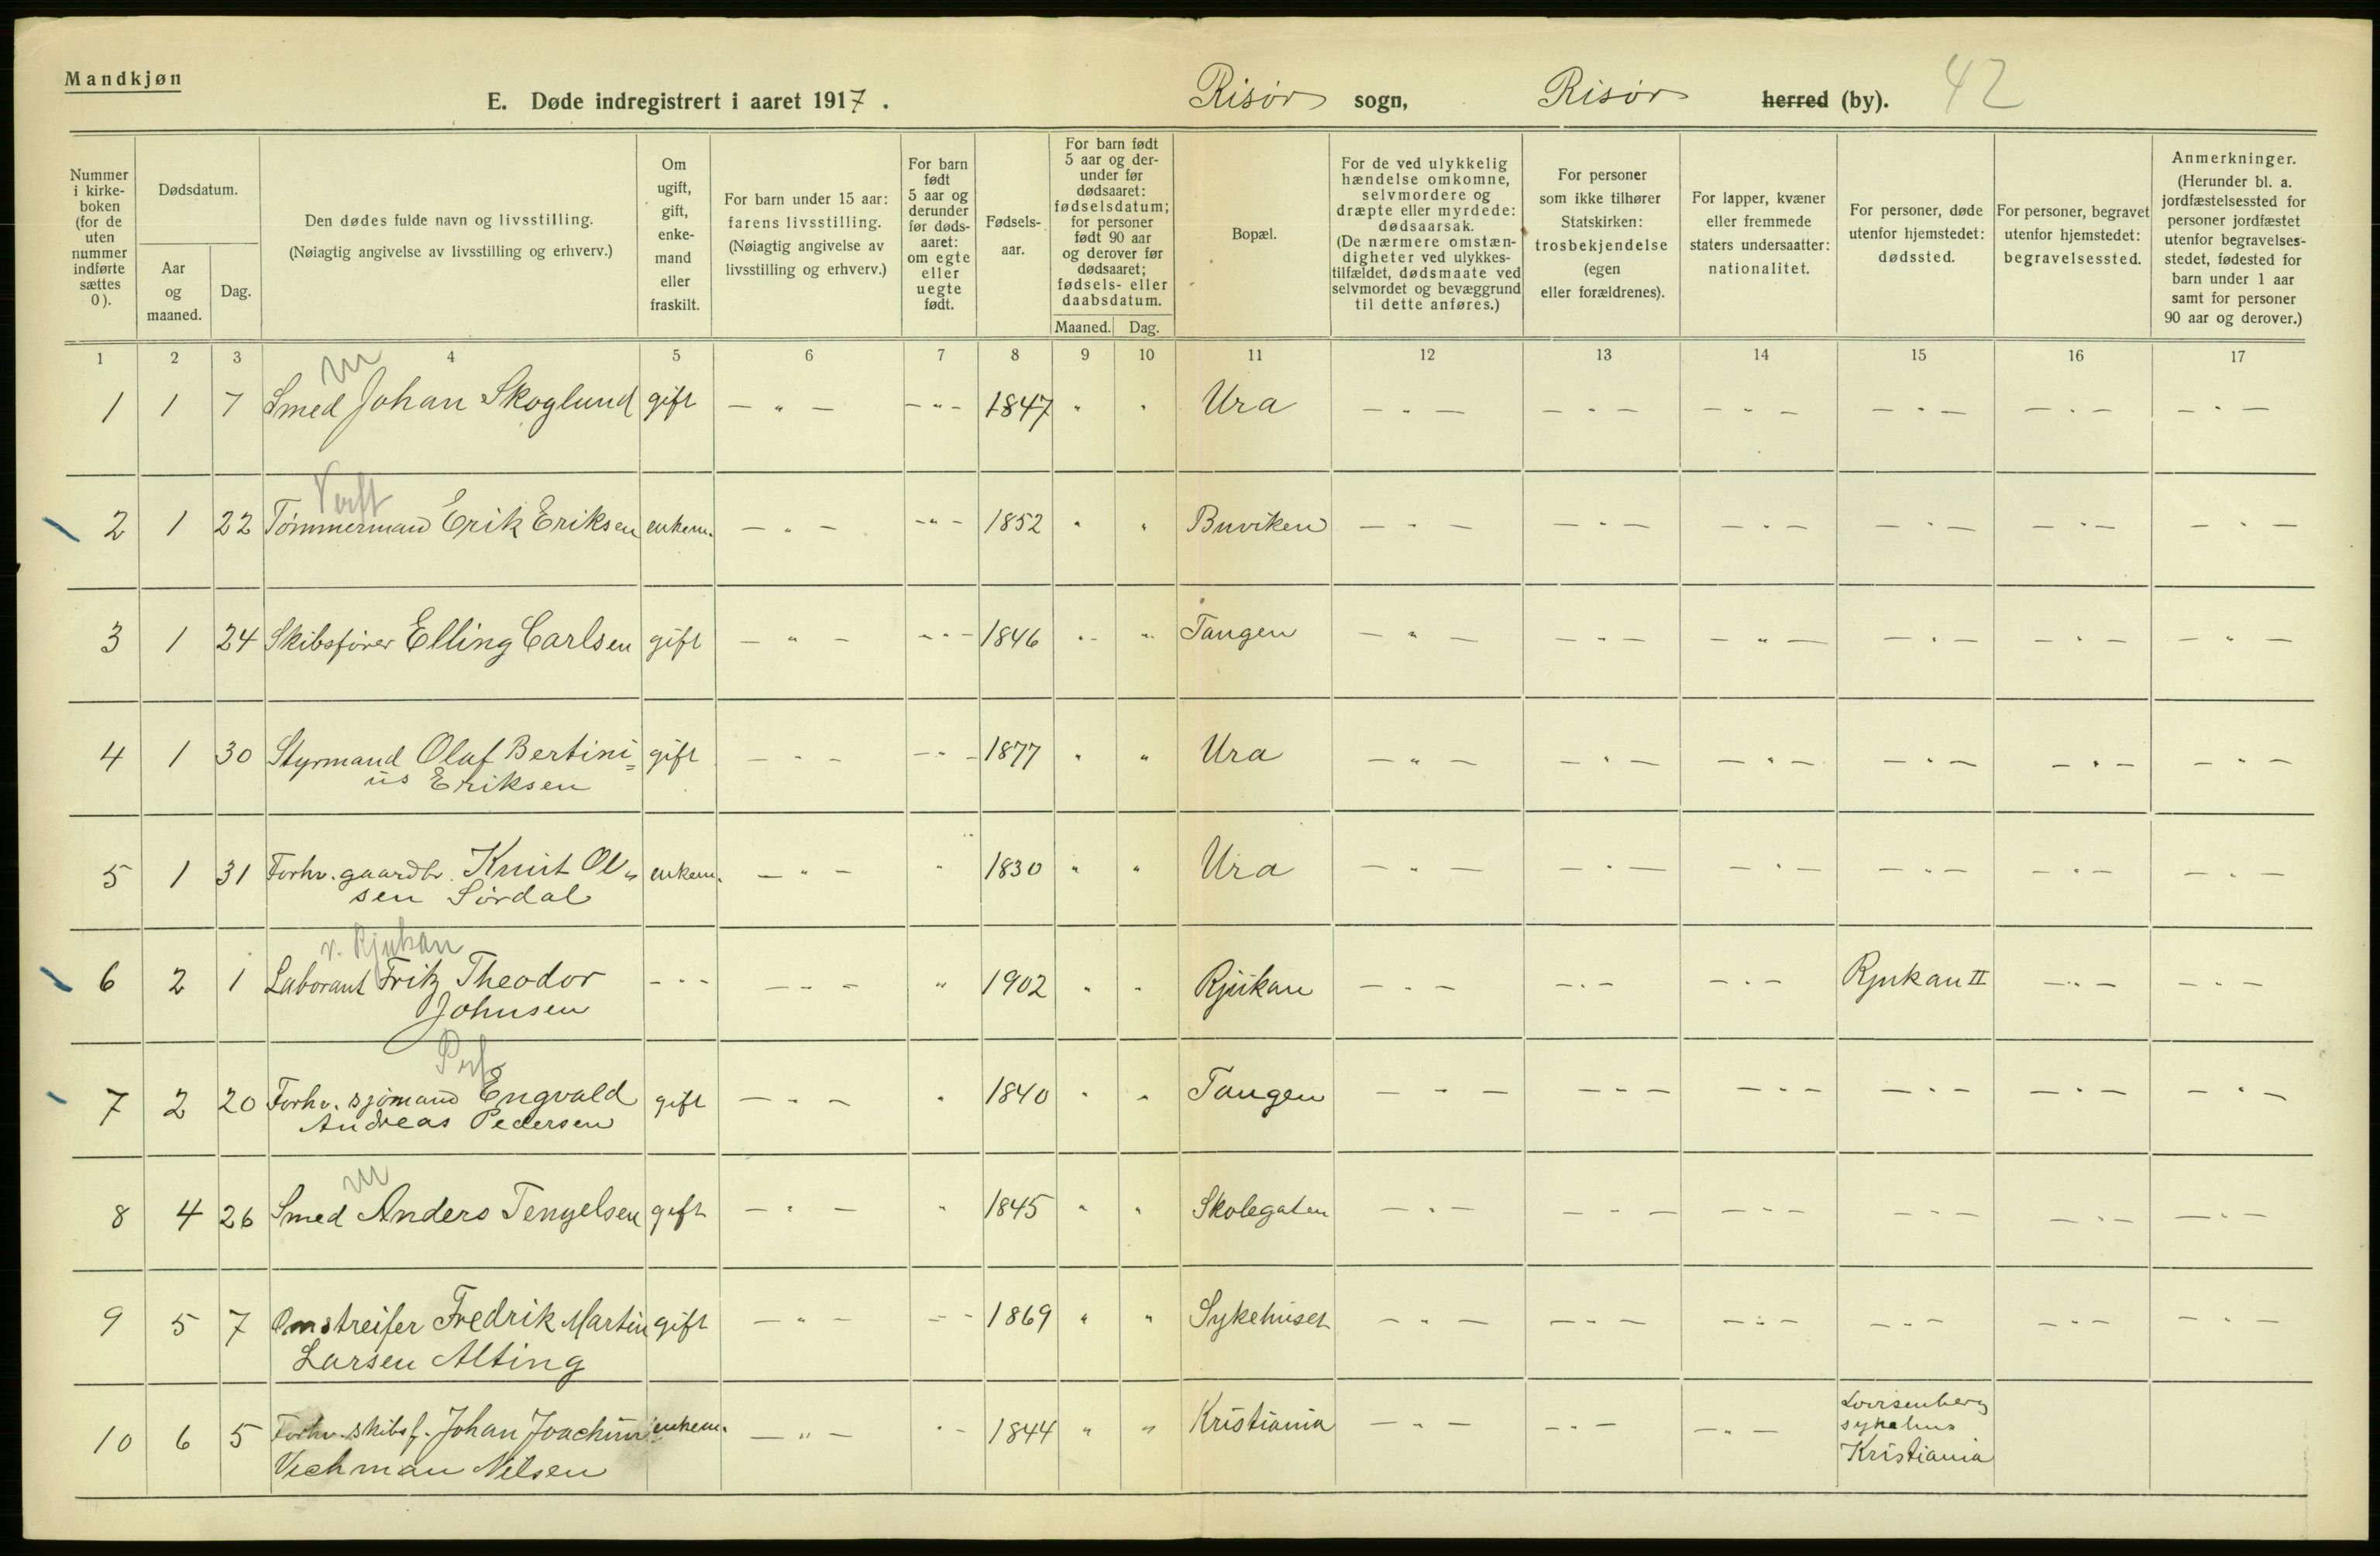 Mandkjøn
E. Døde indregistrert i aaret 1917.
Risør sogn, Risør herred (by). 42
Nummer i kirke-boken (for de uten nummer indførte sættes 0).
Dødsdatum.
Aar og maaned.
Dag.
Den dødes fulde navn og livsstilling.
(Nøiagtig angivelse av livsstilling og erhverv.)
Om ugift, gift, enke-mand eller fraskilt.
For barn under 15 aar: farens livsstilling. (Nøiagtig angivelse av livsstilling og erhverv.)
For barn født 5 aar og derunder før døds-aaret: om egte eller uegte født.
Fødsels-aar.
For barn født 5 aar og der-under før dødsaaret: fødselsdatum; for personer født 90 aar og derover før dødsaaret; fødsels- eller daabsdatum.
Maaned. Dag.
Bopæl.
For de ved ulykkelig hændelse omkomne, selvmordere og dræpte eller myrdede: dødsaarsak. (De nærmere omstæn-digheter ved ulykkes-tilfældet, dødsmaate ved selvmordet og bevæggrund til dette anføres.)
For personer som ikke tilhører Statskirken: trosbekjendelse (egen eller forældrenes).
For lapper, kvæner eller fremmede staters undersaatter: nationalitet.
For personer, døde utenfor hjemstedet: dødssted.
For personer, begravet utenfor hjemstedet: begravelsessted.
Anmerkninger. (Herunder bl. a. jordfæstelsessted for personer jordfæstet utenfor begravelses-stedet, fødested for barn under 1 aar samt for personer 90 aar og derover.)
1 2 3 4 5 6 7 8 9 10 11 12 13 14 15 16 17
m
1 1 7 Smed Johan Skoglund gift — " — — " — 1847 " " Ura — " — — " — — " — — " — — " — — " —
Verft
2 1 22 Tømmermand Erik Eriksen enkem. — " — — " — 1852 " " Buviken — " — — " — — " — — " — — " — — " —
3 1 24 Skibsfører Elling Carlsen gift — " — — " — 1846 " " Tangen — " — — " — — " — — " — — " — — " —
4 1 30 Styrmand Olaf Bertini= gift — " — — " — 1877 " " Ura — " — — " — — " — — " — — " — — " —
us Eriksen
5 1 31 Forhv. gaardbr. Knut Ol= enkem. — " — " 1830 " " Ura — " — — " — — " — — " — — " — — " —
sen Sørdal
v. Rjukan
6 2 1 Laborant Fritz Theodor — " — — " — " 1902 " " Rjukan — " — — " — — " — Rjukan II — " — — " —
Johnsen
7 2 20 Forhv. sjømand Engvald gift — " — " 1840 " " Tangen — " — — " — — " — — " — — " — — " —
Andreas Pedersen
m
8 4 26 Smed Anders Tengelsen gift — " — " 1845 " " Skolegaten — " — — " — — " — — " — — " — — " —
9 5 7 Omstreifer Fredrik Martin gift — " — — " — 1869 " " Sykehuset — " — — " — — " — — " — — " — — " —
Larsen Alting
10 6 5 Forhv. skibsf. Johan Joachim enkem. — " — " — 1844 " " Kristiania — " — — " — — " — Lovisenberg
sykehus
Vichman Nilsen Kristiania